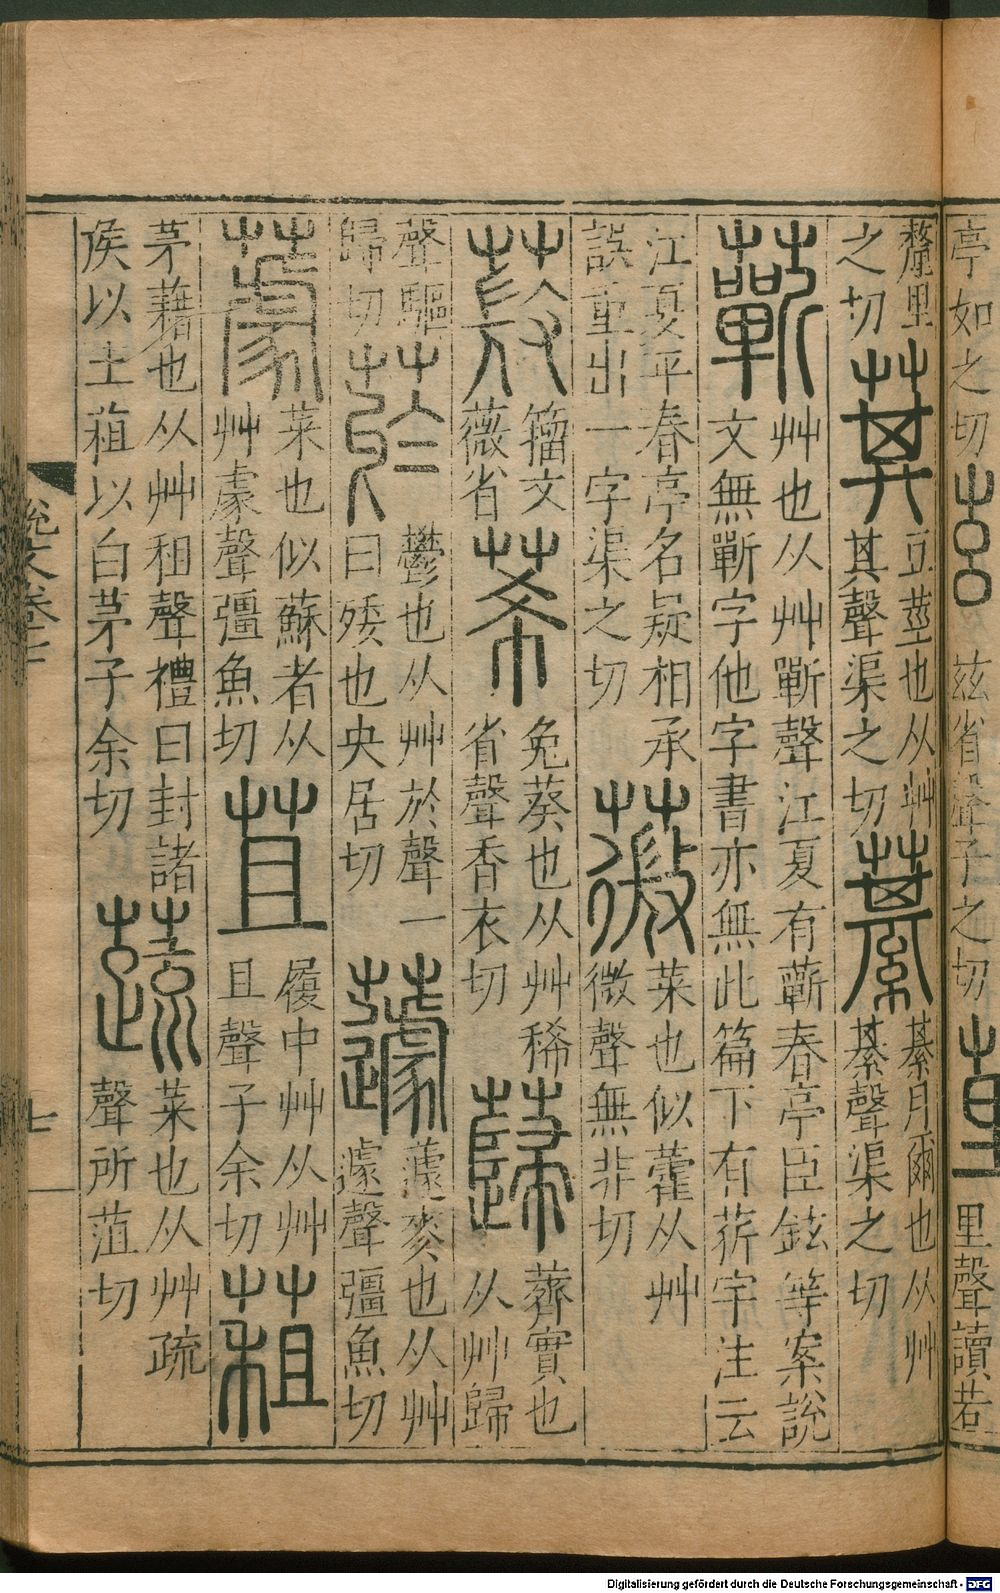 亭如之切 茲 茲省聲子之切 荲 里聲讀若
釐里之切 萁 豆莖也从艸其聲渠之切 藄 綦月爾也从艸綦聲渠之切
蘄 艸也从艸斳聲江夏有蘄春亭臣鉉等案說文無斳字他字書亦無此篇下有菥字注云
江夏平春亭名疑相承誤重出一字渠之切 薇 菜也似藿从艸微聲無非切
籀文薇省 莃 兔葵也从艸稀省聲香衣切 蘬 薺實也从艸歸
聲驅歸切 菸 鬱也从艸於聲一曰㱬也央居切 蘧 蘧麥也从艸遽聲彊魚切
菜也似蘇者从艸豦聲彊魚切 苴 履中艸从艸且聲子余切 蒩
茅藉也从艸租聲禮曰封諸侯以土蒩以白茅子余切 蔬 菜也从艸疏聲所菹切
說文卷
七
Digitalisierung gefördert durch die Deutsche Forschungsgemeinschaft - DFG